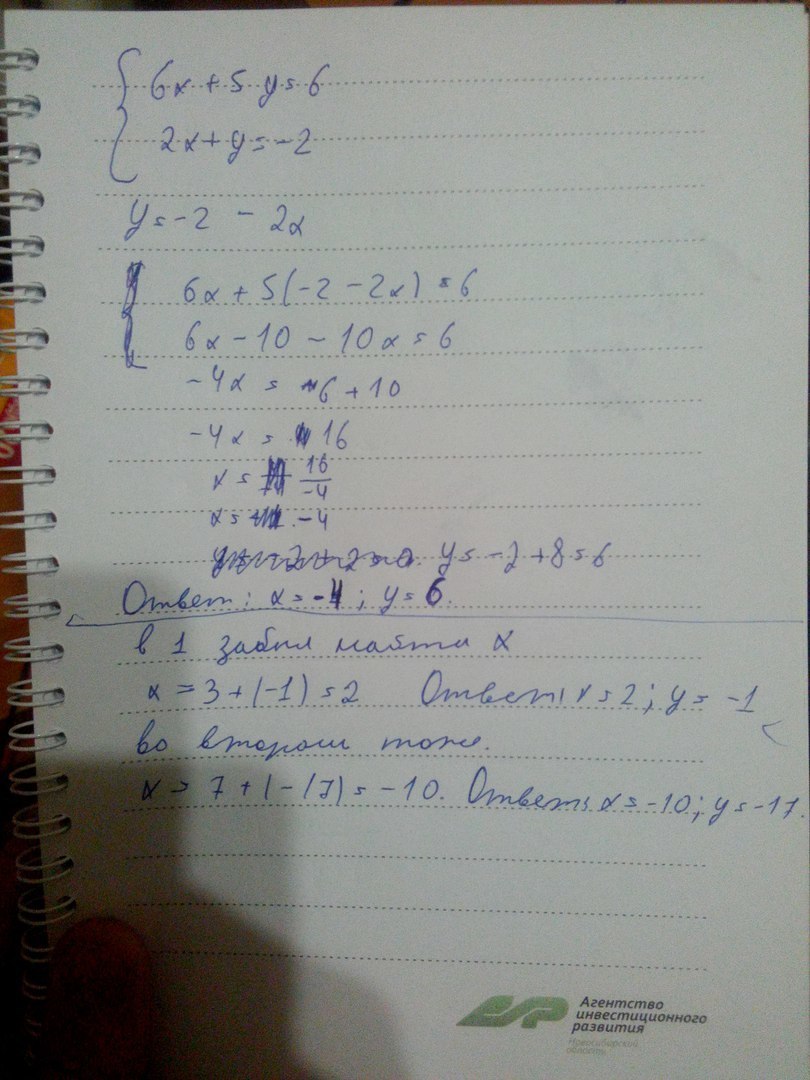 6x + 5y = 6
2x + y = -2
y = -2 - 2x
6x + 5(-2 - 2x) = 6
6x - 10 - 10x = 6
-4x = 6 + 10
-4x = 16
x = 16/-4
x = -4
y = -2 + 8 = 6
Ответ: x = -4; y = 6.
в 1 забыл найти x
x = 3 + (-1) = 2 Ответ: x = 2; y = -1
во втором тоже.
x = 7 + (-17) = -10. Ответ: x = -10; y = -17.
Агентство
инвестиционного
развития
Новосибирской
области